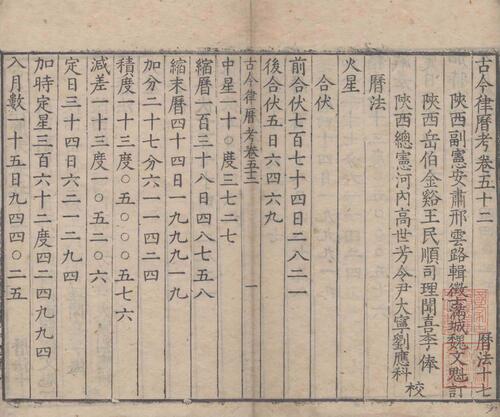 古今律曆考卷五十二
曆法十七
陝西副憲安肅邢雲路輯徵士滿城魏文魁訂
陝西岳伯金谿王民順司理聞喜李俸
陝西總憲河內高世芳令尹大寧劉應科
校
曆法
火星
合伏
前合伏七百七十四日二八二一
後合伏五日六四六九
古今律曆考卷五十二
一
中星一十〇度三七二七
縮曆一百三十八日四八七五八
縮末曆四十四日一九九九一九
加分二十七分六一一四二四
積度一十三度〇五〇〇〇五七六
減差一十三度一〇五二〇六
定日三十四日六二一二九四
加時定星三百六十二度四二四九九四
入月數一十五日九四四〇二五